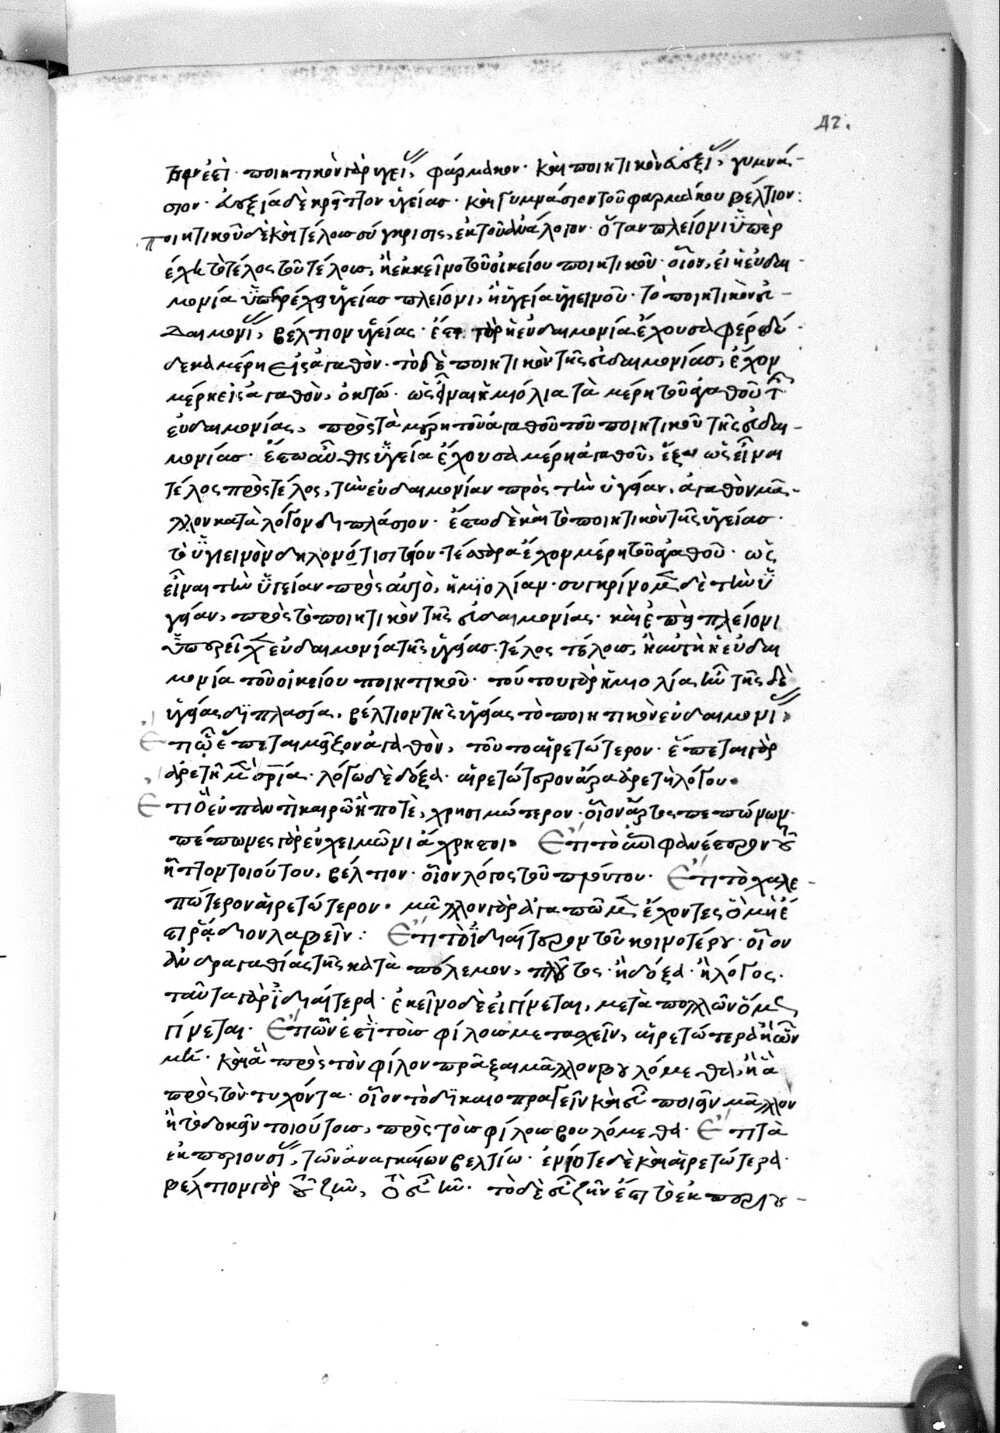 42.
ἐστι· ποιητικὸν γὰρ ὑγεί, φάρμακον· καὶ ποιητικὸν εὐεξί, γυμνά-
σιον· εὐεξία δὲ κρεῖττον ὑγείας· καὶ γυμνάσιον τοῦ φαρμάκου βέλτιον:
ποιητικοῦ δὲ καὶ τέλους σύγκρισις, ἐκ τοῦ ἀνάλογον· ὅταν πλείονι ὑπερ
έχη τὸ τέλος τοῦ τέλους, ἢ ἐκεῖνο τοῦ οἰκείου ποιητικοῦ· οἷον, εἰ ἡ εὐδαι-
μονία ὑπερέχει ὑγείας πλείονι, ἢ ὑγεία ὑγιεινοῦ· τὸ ποιητικὸν εὐ-
δαιμονί, βέλτιον ὑγείας· ἔστω γὰρ ἡ εὐδαιμονία ἔχουσα φέρε δώ-
δεκα μέρη εἰς ἀγαθόν· τὸ δὲ ποιητικὸν τῆς εὐδαιμονίας, ἔχον
μέρη εἰς ἀγαθὸν, ὀκτώ· ὡς εἶναι ἡμιόλια τὰ μέρη τοῦ ἀγαθοῦ τ
εὐδαιμονίας, πρὸς τὰ μέρη τοῦ ἀγαθοῦ τοῦ ποιητικοῦ τῆς εὐδαι-
μονίας· ἔστω αὖθις ὑγεία ἔχουσα μέρη ἀγαθοῦ, ἕξ· ὡς εἶναι
τέλος πρὸς τέλος, τὴν εὐδαιμονίαν πρὸς τὴν ὑγείαν, ἀγαθὸν μᾶ-
λλον κατὰ λόγον διπλάσιον· ἔστω δὲ καὶ τὸ ποιητικὸν τῆς ὑγείας·
τὸ ὑγιεινὸν δηλονότι τέσσαρα ἔχον μέρη τοῦ ἀγαθοῦ· ὡς
εἶναι τὴν ὑγείαν πρὸς αὐτὸ, ἡμιολίαν· συγκρίνομεν δὲ τὴν ὑ
γείαν, πρὸς τὸ ποιητικὸν τῆς εὐδαιμονίας· καὶ ἐπεὶ πλείονι
ὑπερεῖχεν εὐδαιμονία τῆς ὑγείας τέλος τέλους, ἢ αὐτὴ ἡ εὐδαι
μονία τοῦ οἰκείου ποιητικοῦ· τούτου γὰρ ἡμιολία ἦν τῆς δὲ
ὑγείας διπλασία, βέλτιον τῆς ὑγείας τὸ ποιητικὸν εὐδαιμονί
Ἔτι ᾧ ἕπεται μεῖζον ἀγαθὸν, τοῦτο αἱρετώτερον· ἕπεται γὰρ
ἀρετῆ μὲν σωτηρία· λόγω δὲ δόξα· αἱρετώτερον ἄρα ἀρετὴ λόγου·
Ἔτι ὃ ἐν παντὶ καιρῶ ἢ ποτὲ, χρησιμώτερον· οἷον ἄρτος πεπώνων·
πέπωνες γὰρ ἐν χειμῶνι ἄχρηστοι· Ἔτι τὸ ἐπιφανέστερον τοῦ
ἧττον τοιούτου, βέλτιον· οἷον λόγος τοῦ πλούτου· Ἔτι τὸ χαλε-
πώτερον αἱρετώτερον· μᾶλλον γὰρ ἀγαπῶμεν ἔχοντες ὃ μὴ ἔ
στι ῥάδιον λαβεῖν: Ἔτι τὸ ἰδιαίτερον τοῦ κοινοτέρου· οἷον
ἀνδραγαθίας τῆς κατὰ πόλεμον, πλοῦτος· ἢ δόξα· ἢ λόγος·
ταῦτα γὰρ ἰδιαίτερα· ἐκεῖνο δὲ εἰ γίνεται, μετὰ πολλῶν ὅμως
γίνεται· Ἔτι ὧν ἐστὶ τοὺς φίλους μετασχεῖν, αἱρετώτερα ἢ ὧν
μή· καὶ ἃ πρὸς τὸν φίλον πρᾶξαι μᾶλλον βουλόμεθα, ἢ ἃ
πρὸς τὸν τυχόντα· οἷον τὸ δικαιοπραγεῖν καὶ εὖ ποιεῖν μᾶλλον
ἢ τὸ δοκεῖν τοιούτους, πρὸς τοὺς φίλους βουλόμεθα· Ἔτι τὰ
ἐκ περιουσί, τῶν ἀναγκαίων βελτίω· ἐνίοτε δὲ καὶ αἱρετώτερα·
βέλτιον γὰρ τοῦ ζῆν, τὸ εὖ ζῆν· τὸ δὲ εὖ ζῆν ἐστὶ τὸ ἐκ περιου-